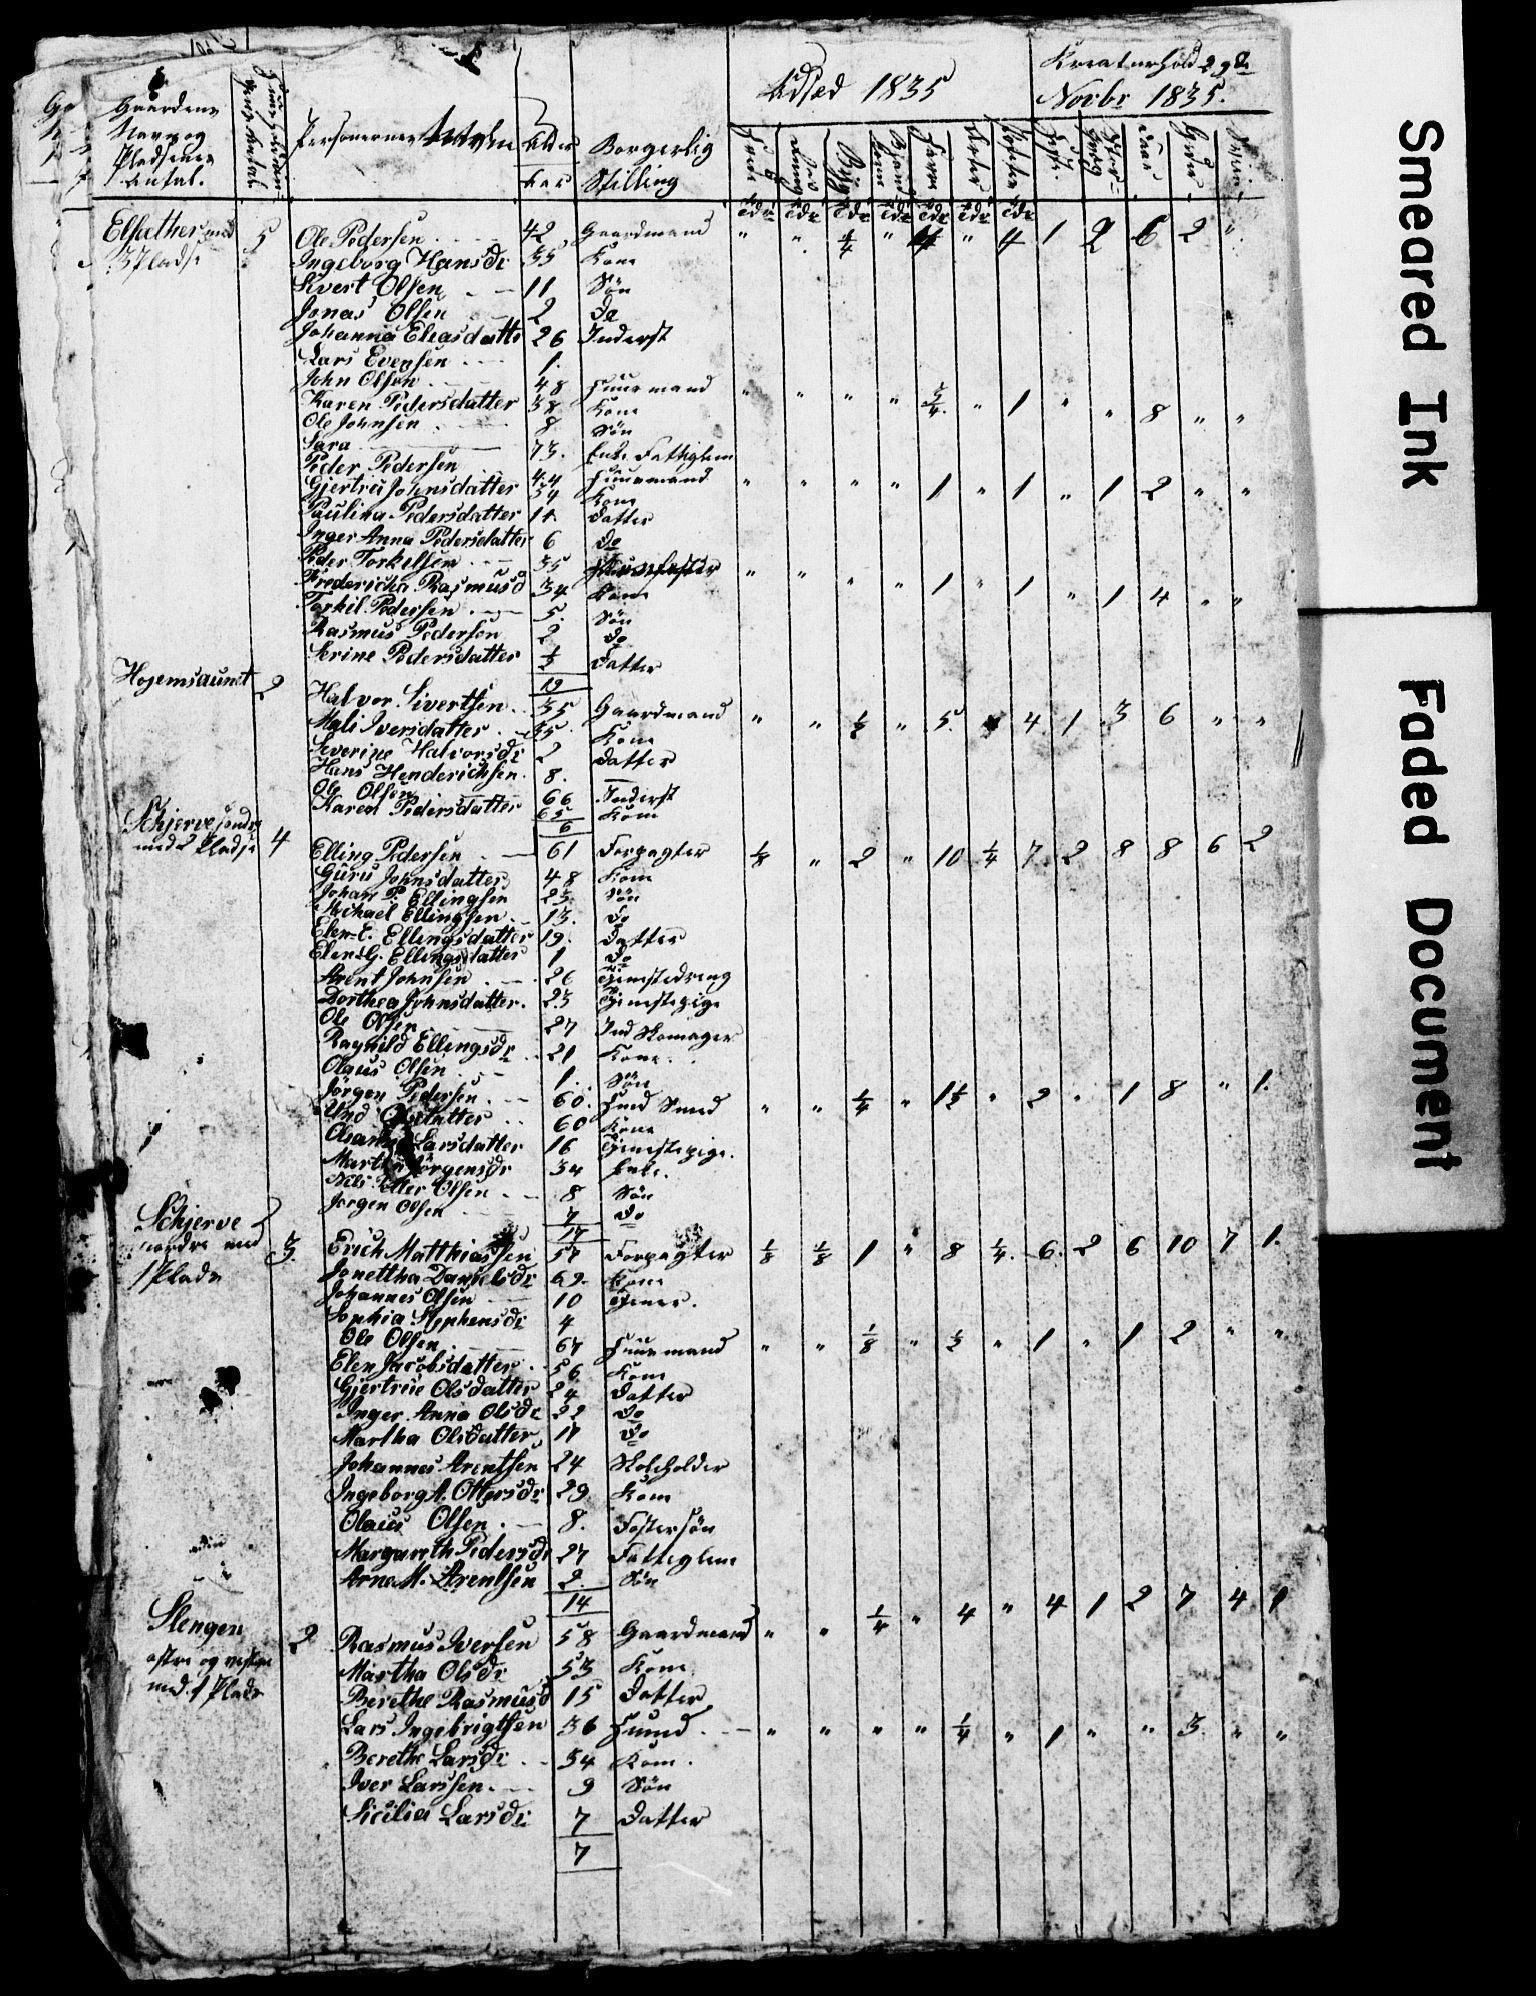 Udsæd 1835
Kreaturhold 29de
Novbr 1835.
Gaardens
Navn og
Pladsenes
Antal.
Personernes Navn
Alder
Aar
Borgerlig
Stilling
Tdr Tdr Tdr Tdr Tdr Tdr Tdr
Elsather med 5 Ole Pedersen 42 Gaardmand " " 1/4 " 4 " 4 1 2 6 2 "
3 Pladse Ingeborg Hansdr 35 Kone
Sivert Olsen 11 Søn
Jonas Olsen 2 Do
Johanna Eliasdatter 26 Inderst
Lars Evensen 1.
John Olsen 48 Huusmand " " " " 3/4 " 1 " " 8 " "
Karen Pedersdatter 38 Kone
Ole Johnsen 8 Søn
Sara 73. Enke Fattiglem
Peder Pedersen 44 Huusmand " " " " 1 " 1 " 1 2 " "
Gjertru Johnsdatter 34 Kone
Paulina Pedersdatter 11. Datter
Inger Anna Pedersdatter 6 Do
Peder Torkilsen 35 " " " " 1 " 1 " 1 4 " "
Fredericha Rasmusd 34 Kone
Torkil Pedersen 5. Søn
Rasmus Pedersen 2 Do
Serine Pedersdatter 1/2 Datter
19
Hojemsaunet 2 Halvor Sivertsen 35 Gaardmand " " 1/2 " 5. " 4 1 3 6 " "
Mali Iversdatter 35 Kone
Severine Halvorsdr 2 Datter
Hans Henderichsen 8.
Ole Olsen 66 Inderst
Karen Pedersdatter 65 Kone
6
Schjerve søndre 4 Elling Pedersen 61 Forpagter 1/8 " 2 " 10 1/4 7 2 8 8 6 2
med 2 Pladse Guru Johnsdatter 48 Kone
Johan P. Ellingsen 23 Søn
Michael Ellingsen 13. Do
Elen E. Ellingsdatter 19. Datter
Elen G. Ellingsdatter 1 Do
Arent Johnsen 26 Tjenestedreng
Dorthea Johnsdatter 23 Tjenestepige
Ole Olsen 27 Ind Skomager
Ragnild Ellingsdr 21 Kone.
Olaus Olsen 1. Søn
Jørgen Pedersen 60. Huusmd Smed " " 1/4 " 1 1/2 " 2 " 1 8 " 1.
60 Kone
Larsdatter 16 Tjenestepige.
Martha Jørgensdr 34 Enke.
Nils Peter Olsen 8 Søn
Jørgen Olsen 7 Do
17
Schjerve 3. Erich Matthiassen 57 Forpagter 1/8 1/8 1 " 8 1/4. 6. 2 6 10 7 1.
nordre med Jonettha Danielsdr 69. Kone
1 Plads Johannes Olsen 10 Tjener.
Sophia Stephensdr 4
Ole Olsen 67 Huusmand " " 1/8 " 1/2 " 1 " 1 2 " "
Elen Jacobsdatter 56 Kone
Gjertrue Olsdatter 24 Datter
Inger Anna Olsdr 22 Do
Martha Olsdatter 17 Do
Johannes Arentsen 24 Skoleholder
Ingeborg A. Ottersdr 29 Kone
Olaus Olsen 8. Fostersøn
Margareth Pedersdr 27 Fattiglem
Arne M. Arentsen 2. Søn
14
Slengen 2 Rasmus Iversen 58 Gaardmand " " 1/4 " 4 " 4 1 2 7 4 1
østre og vestre Martha Olsdr 53 Kone
med 1 Plads Berethe Rasmusd 15 Datter
Lars Ingebrigtsen 36 Huusmd. " " " " 1/4 " 1 " " 3. " "
Berethe Larsdr 34 Kone.
Iver Larssen 9 Søn
Sicilia Larsdr 7 Datter
7
Smeared Ink
Faded Document